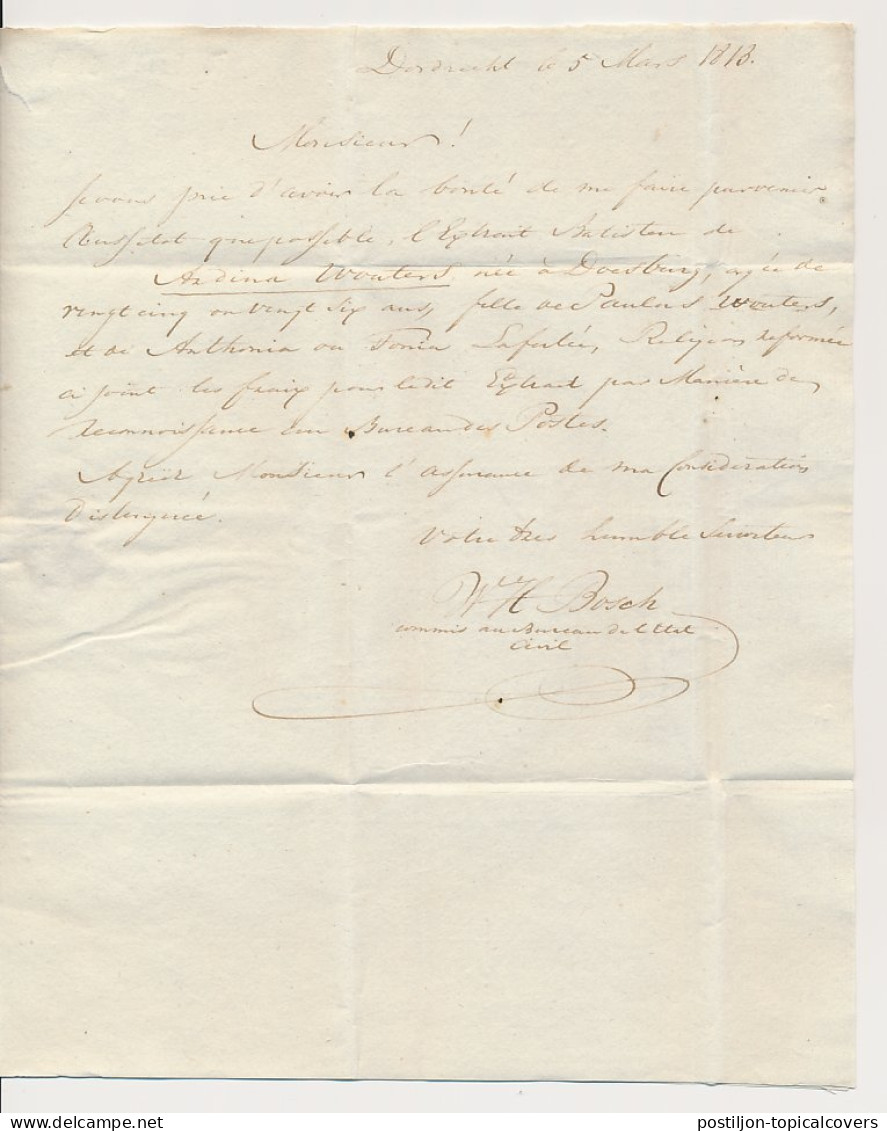 Dordrecht le 5 Mars 1813.
Monsieur!
Je vous prie d'avoir la bonté de me faire parvenir
Aussitot que possible, l'Extrait Batisten de
Ardina Wouters, née à Doesburg, agée de
vingt cinq ou vingt six ans, fille de Paulus Wouters,
et de Anthonia ou Tonia Laferlée, Religion reformée
ci joint les fraix pour ledit Extrait par Manière de
reconnoissance au Bureau des Postes.
Agréér Monsieur l'assurance de ma Consideration
distinguée.
Votre tres humble Serviteur
W H Bosch
commis au Bureau de l'Etat
Civil
postiljon-topicalcovers